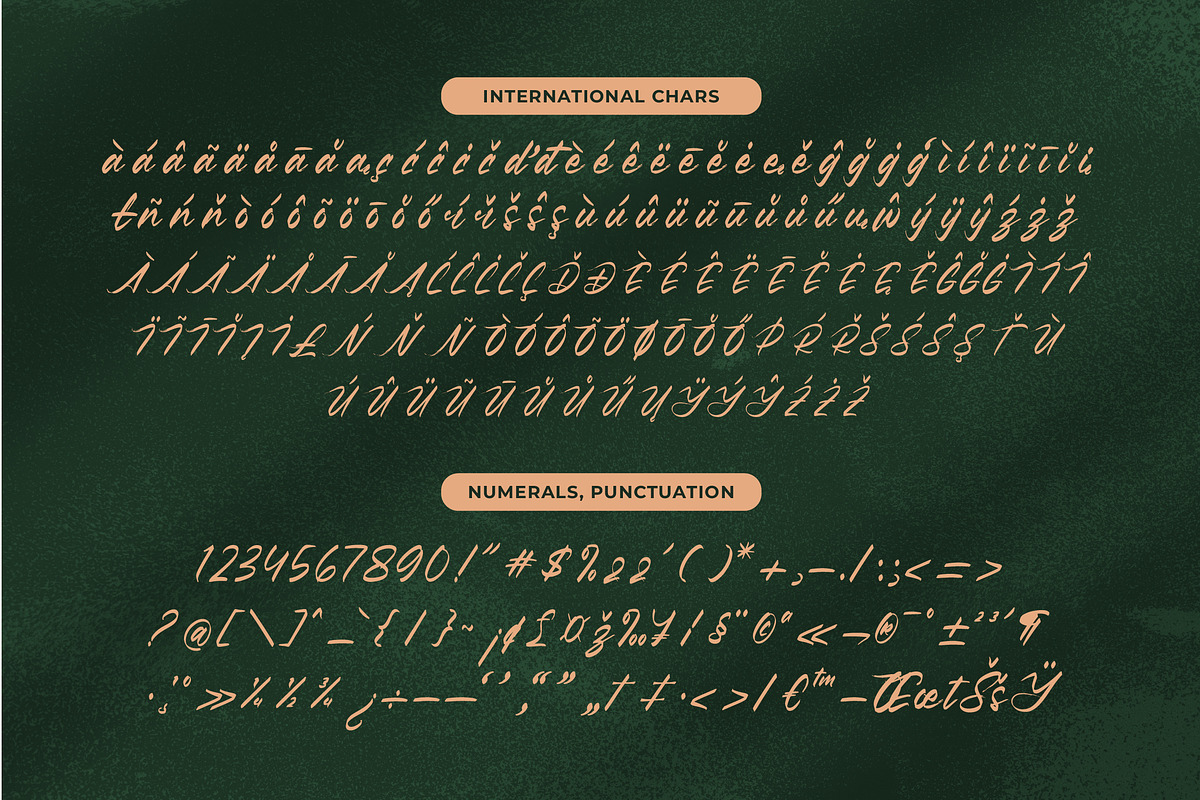 INTERNATIONAL CHARS
à á â ã ä å ā ǎ ą ç ć ĉ ċ č ď đ è é ê ë ē ĕ ė ę ě ĝ ğ ġ ǵ ì í î ï ĩ ī ĭ į
ł ñ ń ň ò ó ô õ ö ō ŏ ő ŕ ř š ŝ ş ù ú û ü ũ ū ŭ ů ű ų ŵ ý ÿ ŷ ź ż ž
À Á Ã Ä Å Ā Å Ą Ć Ĉ Ċ Č Ç Ď Đ È É Ê Ë Ē Ĕ Ė Ę Ě Ĝ Ğ Ġ Ì Í Î
Ï Ĩ Ī Ĭ Į İ Ł Ń Ň Ñ Ò Ó Ô Õ Ö Ø Ō Ŏ Ő Þ Ŕ Ř Š Ś Ŝ Ş Ť Ù
Ú Û Ü Ũ Ū Ŭ Ů Ű Ų Ÿ Ý Ŷ Ź Ż Ž
NUMERALS, PUNCTUATION
1234567890!" # $ % ' ( ) * + , - . / : ; < = >
? @ [ \ ] ^ _ ` { | } ~ ¡ ¢ £ ¤ ž ‰ ¥ ¦ § ¨ © ª « ¬ ® ¯ ° ± ² ³ ´ ¶
· ¸ ¹ º » ¼ ½ ¾ ¿ ÷ – — ‘ ’ ‚ “ ” „ † ‡ · < > / € ™ − Œ œ t Š š Ÿ